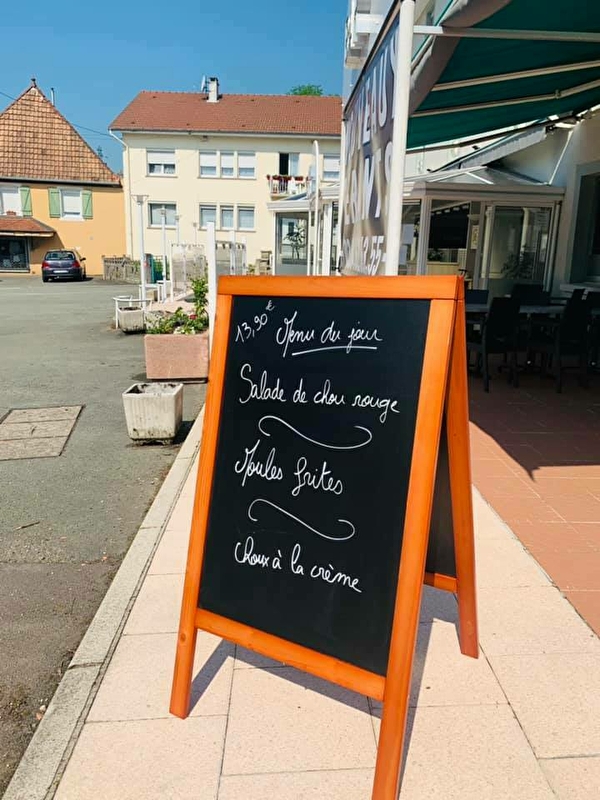 13,90€ Menu du jour
Salade de chou rouge
Moules frites
Choux à la crème